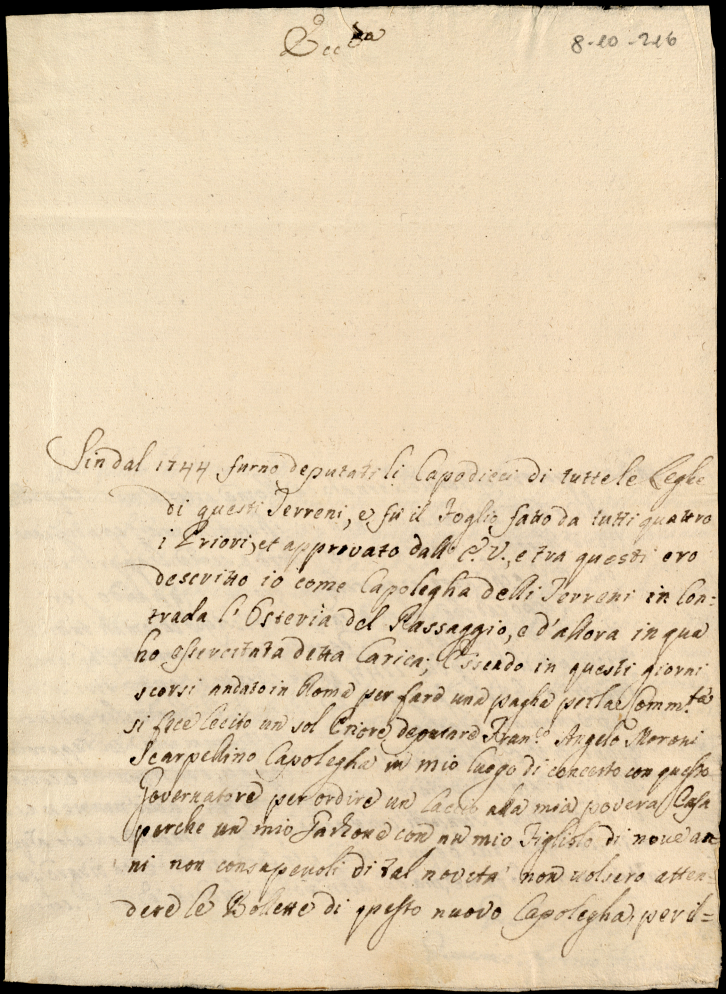 Ecc.za
8-10-216
Sin dal 1744 furno deputati li Capodieci di tutte le Leghe
di questi Terreni, e fù il Foglio fatto da tutti quattro
i Priori, et approvato dall' E. V., e tra questi ero
descritto io come Capolegha delli Terreni in Con-
trada l'Osteria del Passaggio, e d'allora in qua
ho esercitata detta Carica; Essendo in questi giorni
scorsi andato in Roma per fare una pagha per la Comm.tà
si fece lecito un sol Priore deputare Fran.o Angelo Moroni
Scarpellino Capolegha in mio luogo di concerto con questo
Governatore per ordire un laccio alla mia povera Casa
perche un mio Garzone con un mio Figliolo di nove an-
ni non consapevoli di tal novità non volsero atten-
dere le Bollette di questo nuovo Capolegha, per il-